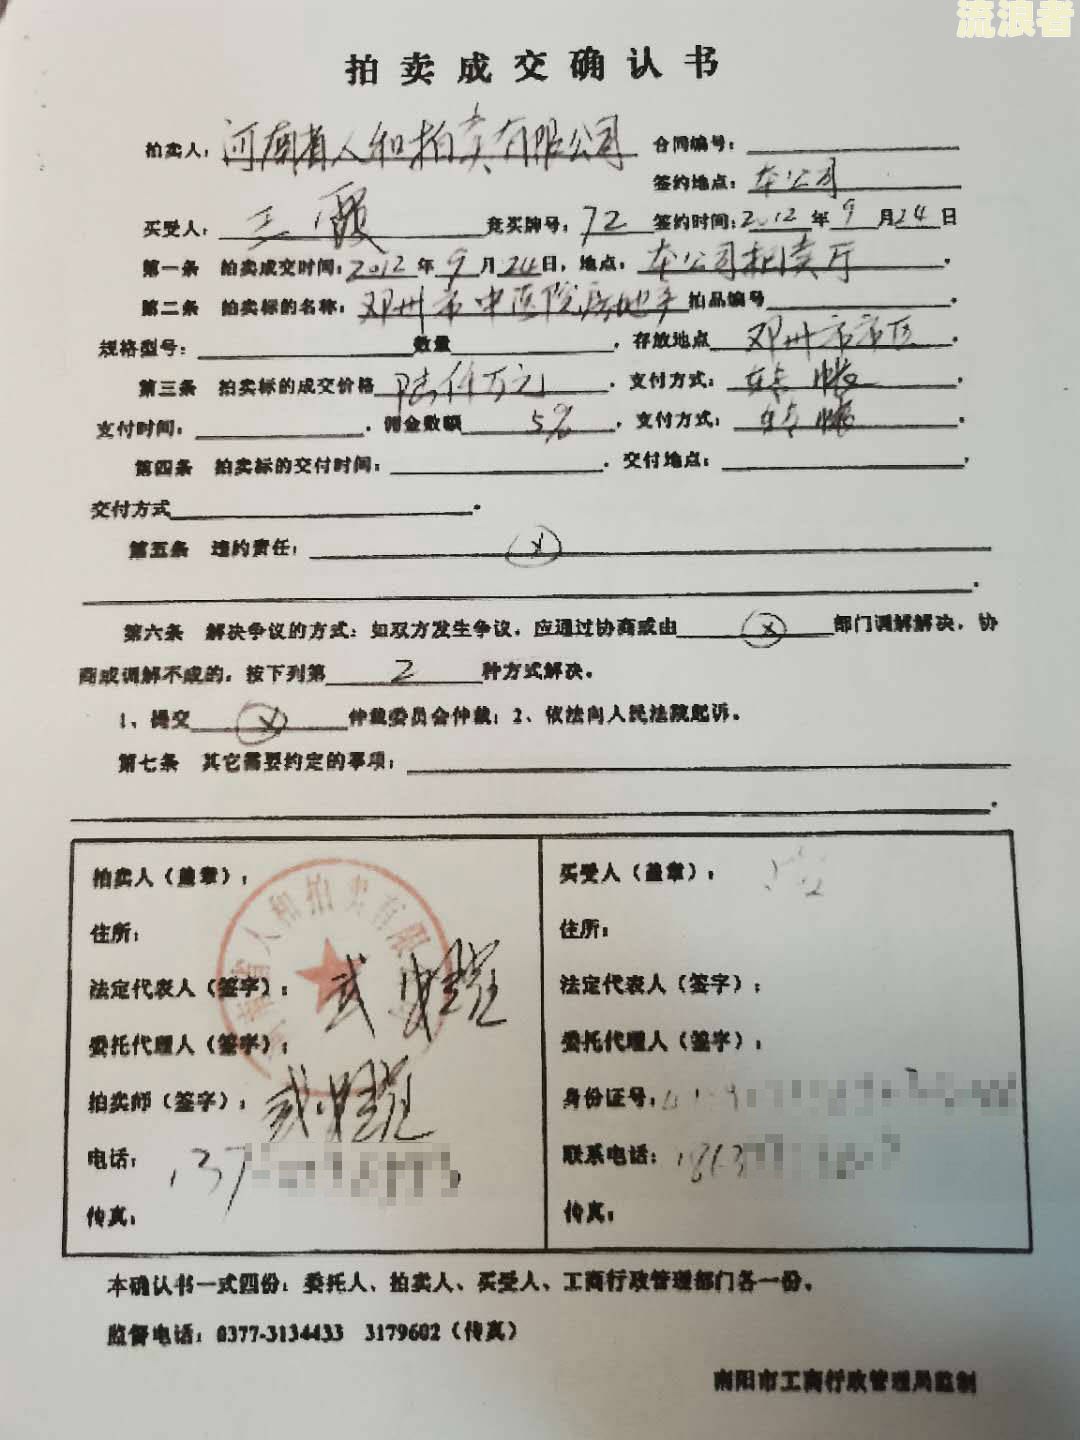 流浪者
拍卖成交确认书
拍卖人：河南省人和拍卖有限公司 合同编号：
签约地点：本公司
买受人：王霞 竞买牌号：72 签约时间：2012年9月24日
第一条 拍卖成交时间：2012年9月24日，地点：本公司拍卖厅。
第二条 拍卖标的名称：邓州市中医院房地产 拍品编号。
规格型号： 数量，存放地点 邓州市市区。
第三条 拍卖标的成交价格 陆仟万元。支付方式：转帐。
支付时间：。佣金数额 5%，支付方式：转帐。
第四条 拍卖标的交付时间：。交付地点：，
交付方式。
第五条 违约责任：X
。
第六条 解决争议的方式：如双方发生争议，应通过协商或由X部门调解解决，协
商或调解不成的，按下列第2种方式解决。
1、提交X仲裁委员会仲裁；2、依法向人民法院起诉。
第七条 其它需要约定的事项：
。
拍卖人（盖章）：
住所：
法定代表人（签字）：武
委托代理人（签字）：
拍卖师（签字）：武
电话：137
传真：
河南省人和拍卖有限
买受人（盖章）：
住所：
法定代表人（签字）：
委托代理人（签字）：
身份证号：
联系电话：1863
传真：
本确认书一式四份：委托人、拍卖人、买受人、工商行政管理部门各一份。
监督电话：0377-3134433 3179602（传真）
南阳市工商行政管理局监制